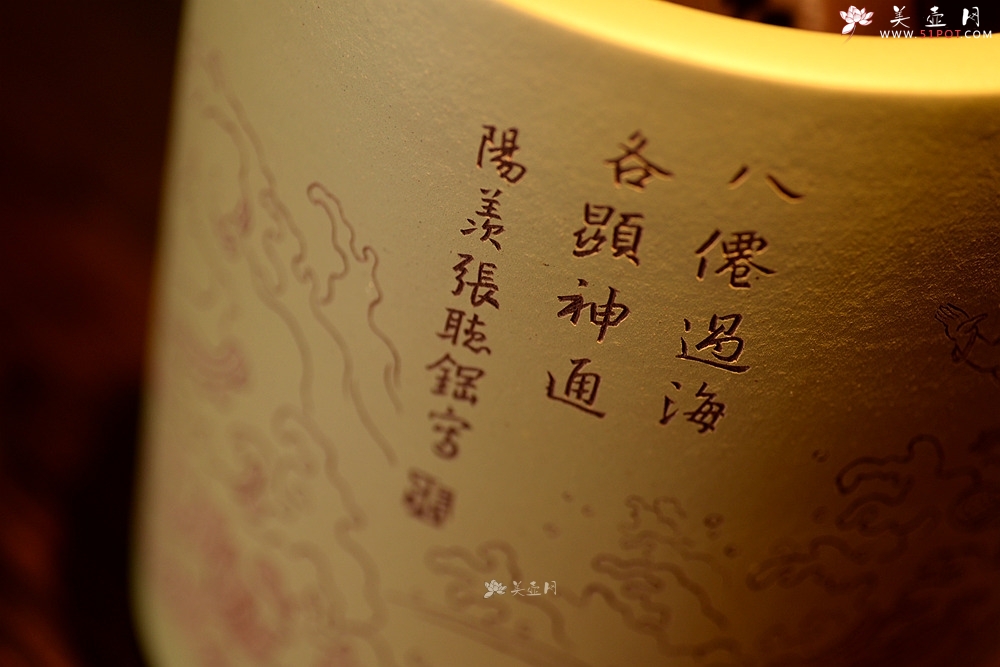 八僊過海
各顯神通
陽羨張聴鋸宮
美壶网
WWW.51POT.COM
美壶网